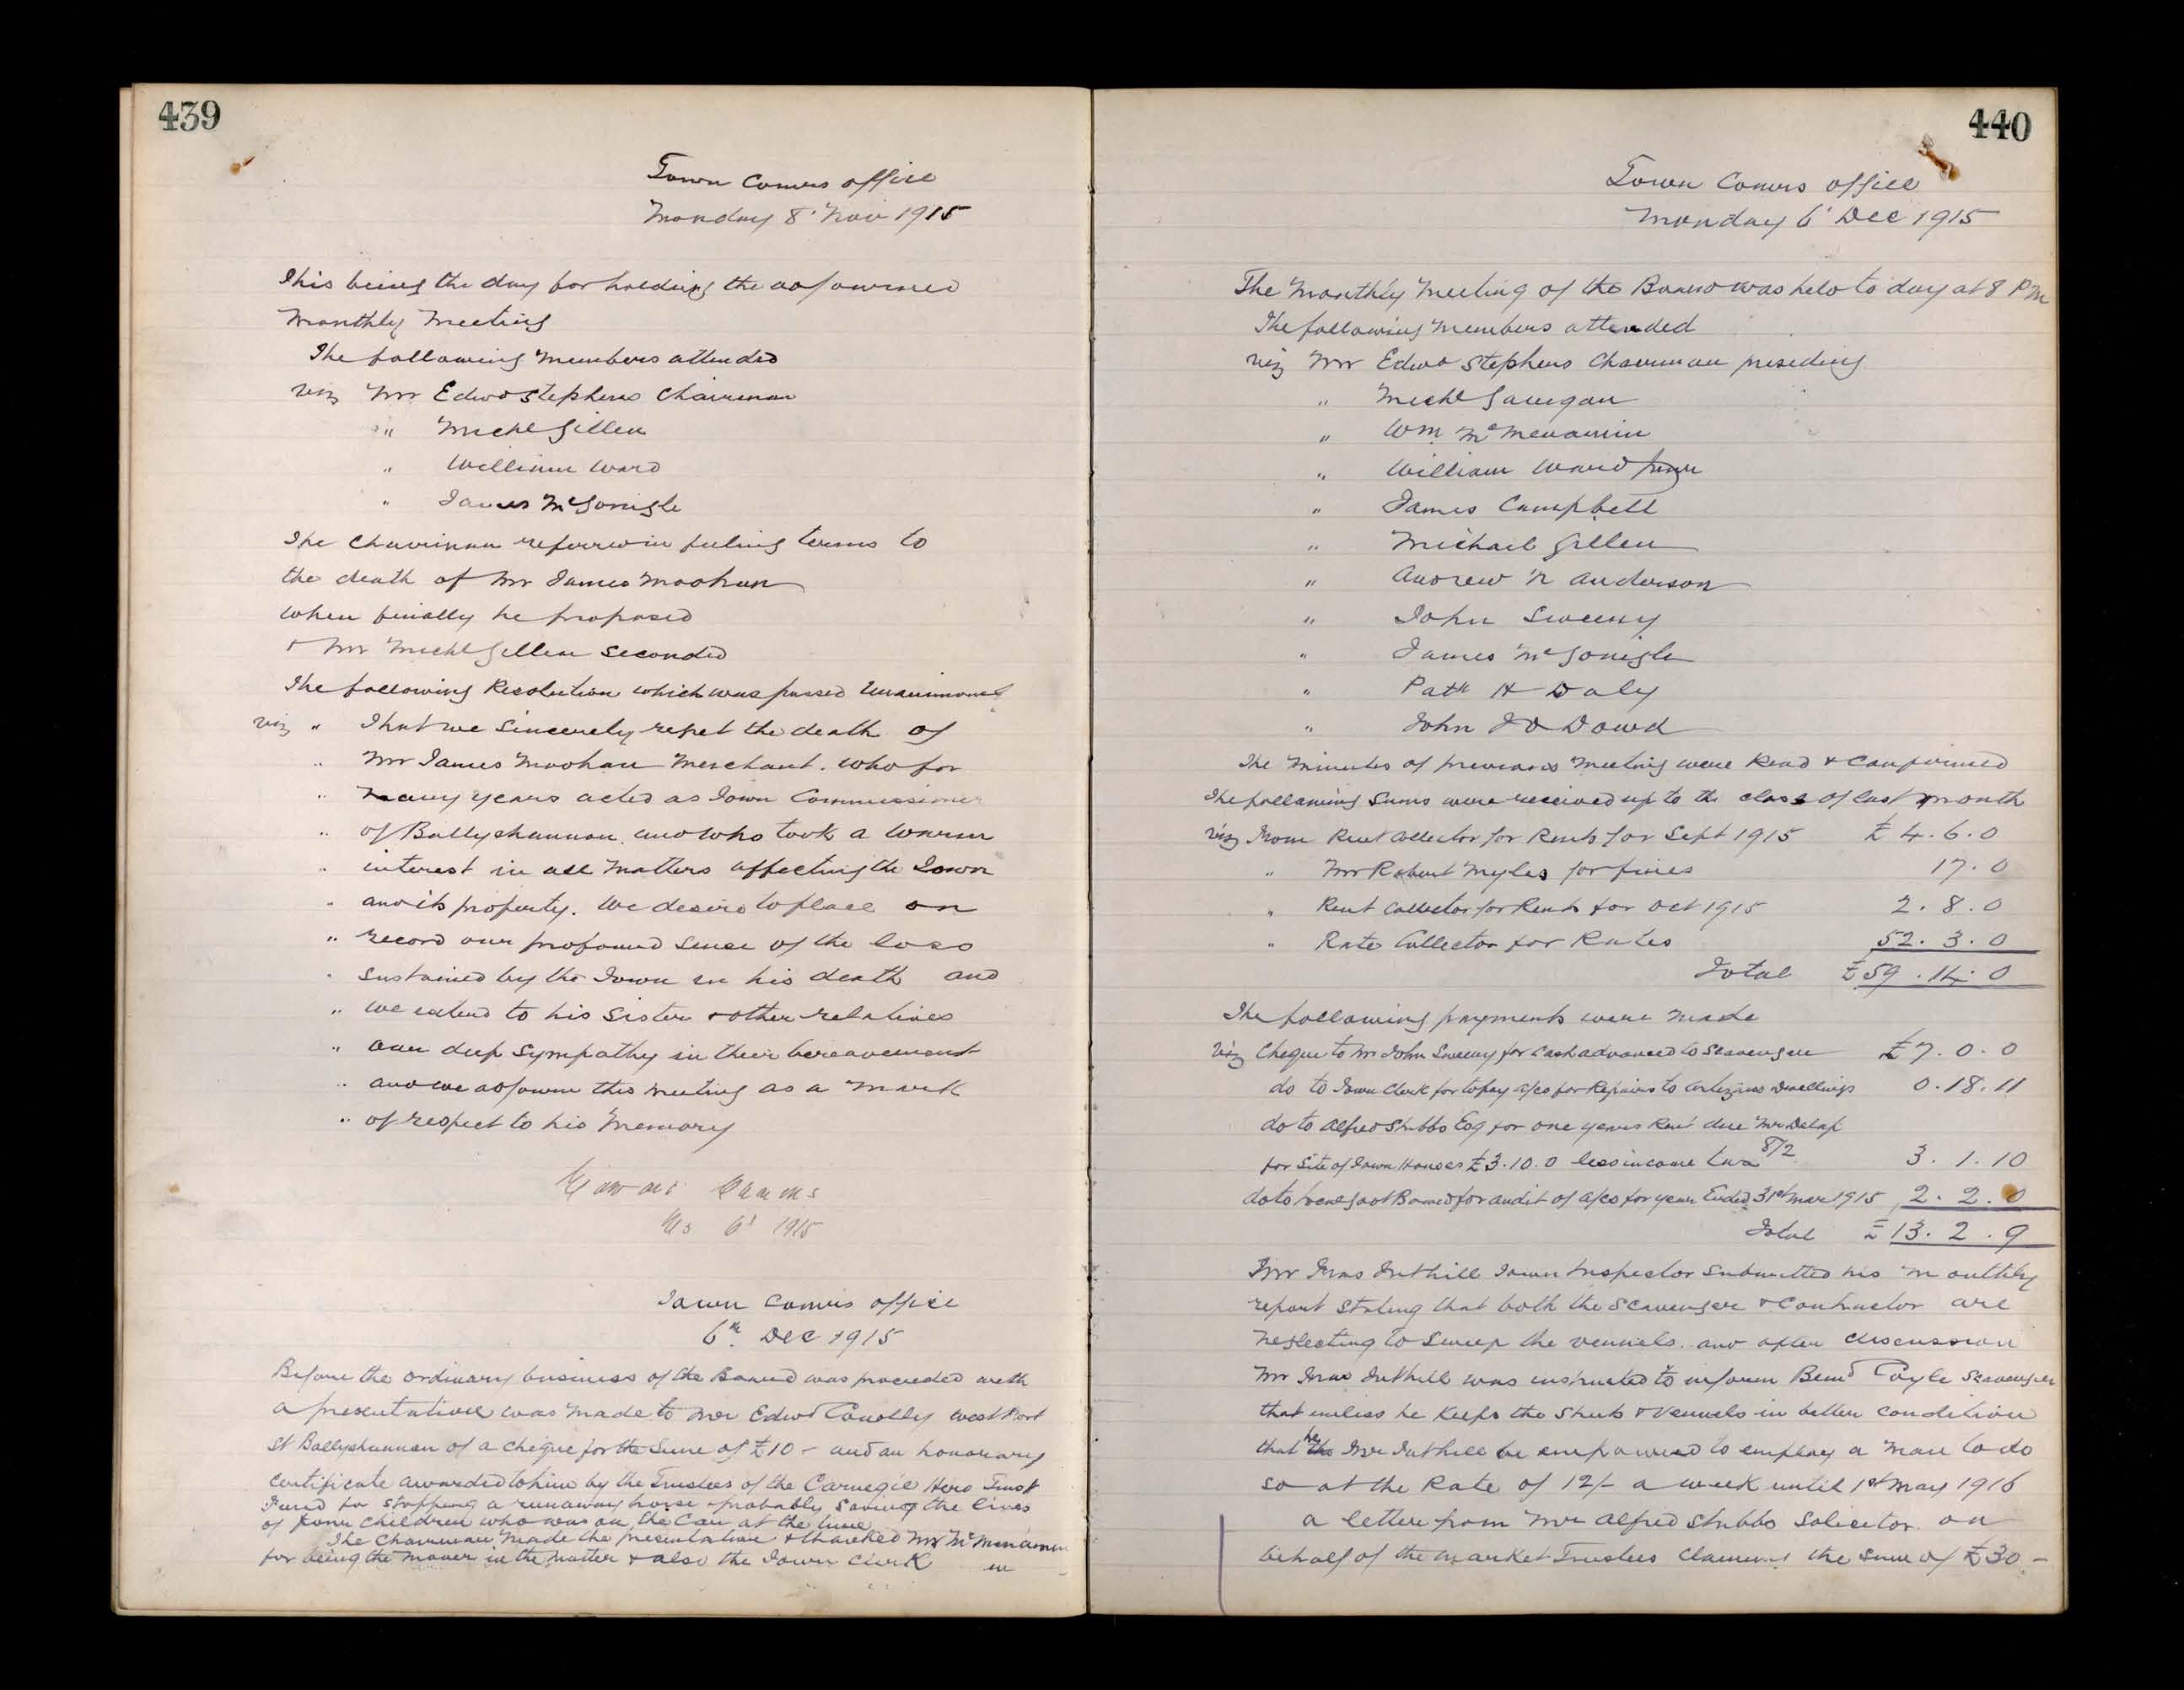 439
Town Comrs office
Monday 8' Nov 1915
This being the day for holding the adjourned
Monthly Meeting
The following Members attended
viz Mr Edwd Stephens Chairman
" Michl Gillen
" William Ward
" James McGonigle
The Chairman referred in feeling terms to
the death of Mr James Moohan
when finally he proposed
& Mr Michl Gillen seconded
The following Resolution which was passed Unanimously
viz " That we sincerely regret the death of
" Mr James Moohan Merchant. who for
" Many years acted as Town Commissioner
" of Ballyshannon. and who took a warm
" interest in all matters affecting the Town
" and its property. We desire to place on
" record our profound sense of the loss
" sustained by the Town in his death and
" we extend to his Sister & other relatives
" our deep sympathy in their bereavement
" and we adjourn this meeting as a Mark
" of respect to his Memory
6' 1915
Town Comrs office
6th Dec 1915
Before the ordinary business of the Board was proceeded with
a presentation was made to Mr Edwd Conolly West Port
St Ballyshannon of a cheque for the Sum of £10 - and an honorary
certificate awarded to him by the Trustees of the Carnegie Hero Trust
Fund for stopping a runaway horse & probably saving the lives
of four children who was on the Car at the time
The Chairman made the presentation & thanked Mr McMenamin
for being the mover in the matter & also the Town Clerk
440
Town Comrs office
Monday 6' Dec 1915
The Monthly Meeting of the Board was held to day at 8 PM
The following Members attended
viz Mr Edwd Stephens Chairman presiding
" Michl Gavigan
" Wm McMenamin
" William Ward
" James Campbell
" Michael Gillen
" Andrew N Anderson
" John Sweeny
" James McGonigle
" Patk H Daly
" John J O Dowd
The Minutes of previous Meeting were Read & Confirmed
The following Sums were received up to the close of last month
viz From Rent Collector for Rents for Sept 1915 £4.6.0
" Mr Robert Myles for fines 17.0
" Rent Collector for Rents for Oct 1915 2.8.0
" Rate Collector for Rates 52.3.0
Total £59.14.0
The following payments were made
viz Cheque to Mr John Sweeny for Cash advanced to Scavenger £7.0.0
do to Town Clerk for to pay a/cs for Repairs to Artizans Dwellings 0.18.11
do to Alfred Stubbs Esq for one years Rent due Mr Delap
for Site of Town Houses £3.10.0 less income tax 8/2 3.1.10
do to Local Govt Board for audit of a/cs for year Ended 31st Mar 1915 2.2.0
Total £13.2.9
Mr Thos Tuthill Town Inspector Submitted his Monthly
report stating that both the Scavenger & Contractor are
neglecting to sweep the vennels. and after discussion
Mr Thos Tuthill was instructed to inform Bernd Coyle Scavenger
that unless he keeps the Streets & Vennels in better condition
that he Mr Tuthill be empowered to employ a Man to do
so at the Rate of 12/- a week until 1st May 1916
a letter from Mr Alfred Stubbs Solicitor. on
behalf of the Market Trustees claiming the sum of £30 -